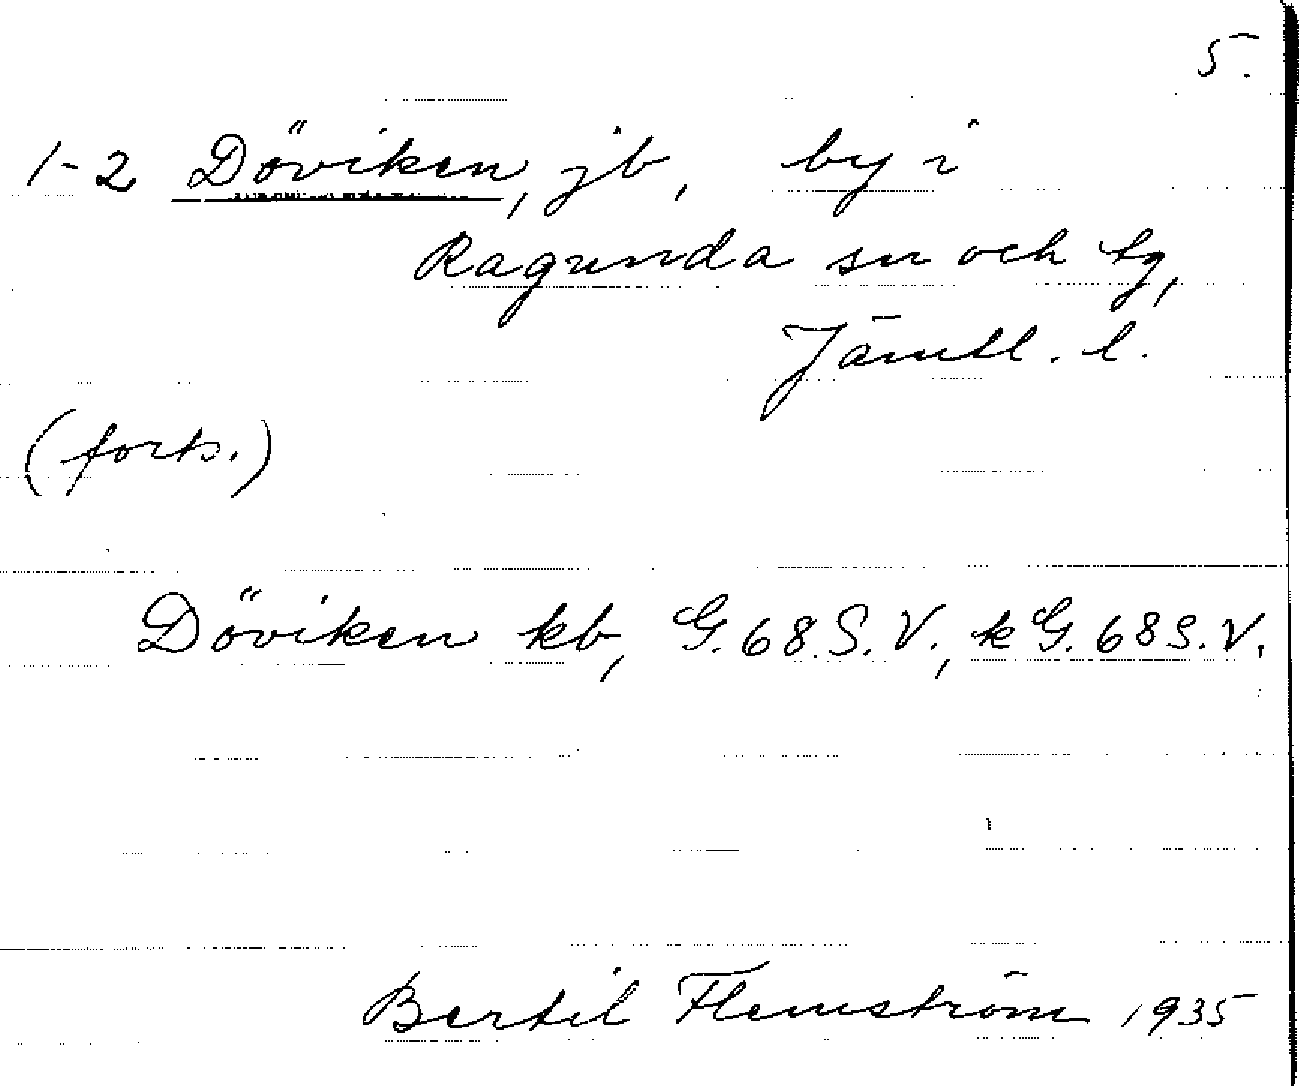 5.
1-2 Döviken, jb, by i
Ragunda sn och tg,
Jämtl. l.
(forts.)
Döviken kb, G. 68. S. V., k G. 68 S. V.
Bertil Flemström 1935